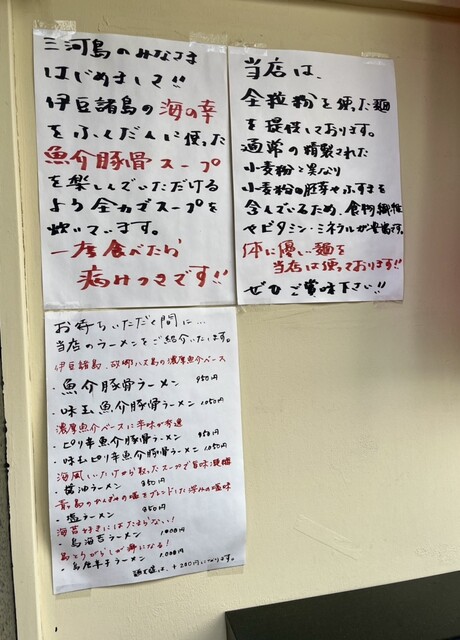 三河島のみなさま
はじめまして!!
伊豆諸島の海の幸
をふんだんに使った
魚介豚骨スープ
を楽しんでいただける
よう全力でスープを
炊いています。
一度食べたら
病みつきです!!
当店は、
全粒粉を使った麺
を提供しております。
通常の精製された
小麦粉と異なり
小麦粉の胚芽やふすまを
含んでいるため、食物繊維
やビタミン・ミネルが豊富です。
体に優しい麺を
当店は使っております!!
ぜひご賞味下さい!!
お待ちいただく間に…
当店のラーメンをご紹介いたします。
伊豆諸島、故郷八丈島の濃厚魚介ベース
・魚介豚骨ラーメン 950円
・味玉魚介豚骨ラーメン 1050円
濃厚魚介ベースに辛味が
・ピリ辛魚介豚骨ラーメン 950円
・味玉ピリ辛魚介豚骨ラーメン 1050円
・醤油ラーメン 850円
・塩ラーメン 850円
海苔好きにはたまらない!
・島海苔ラーメン 1000円
島とうがらしが癖になる!
・島唐辛子ラーメン 1000円
麺大盛は、+200円になります。